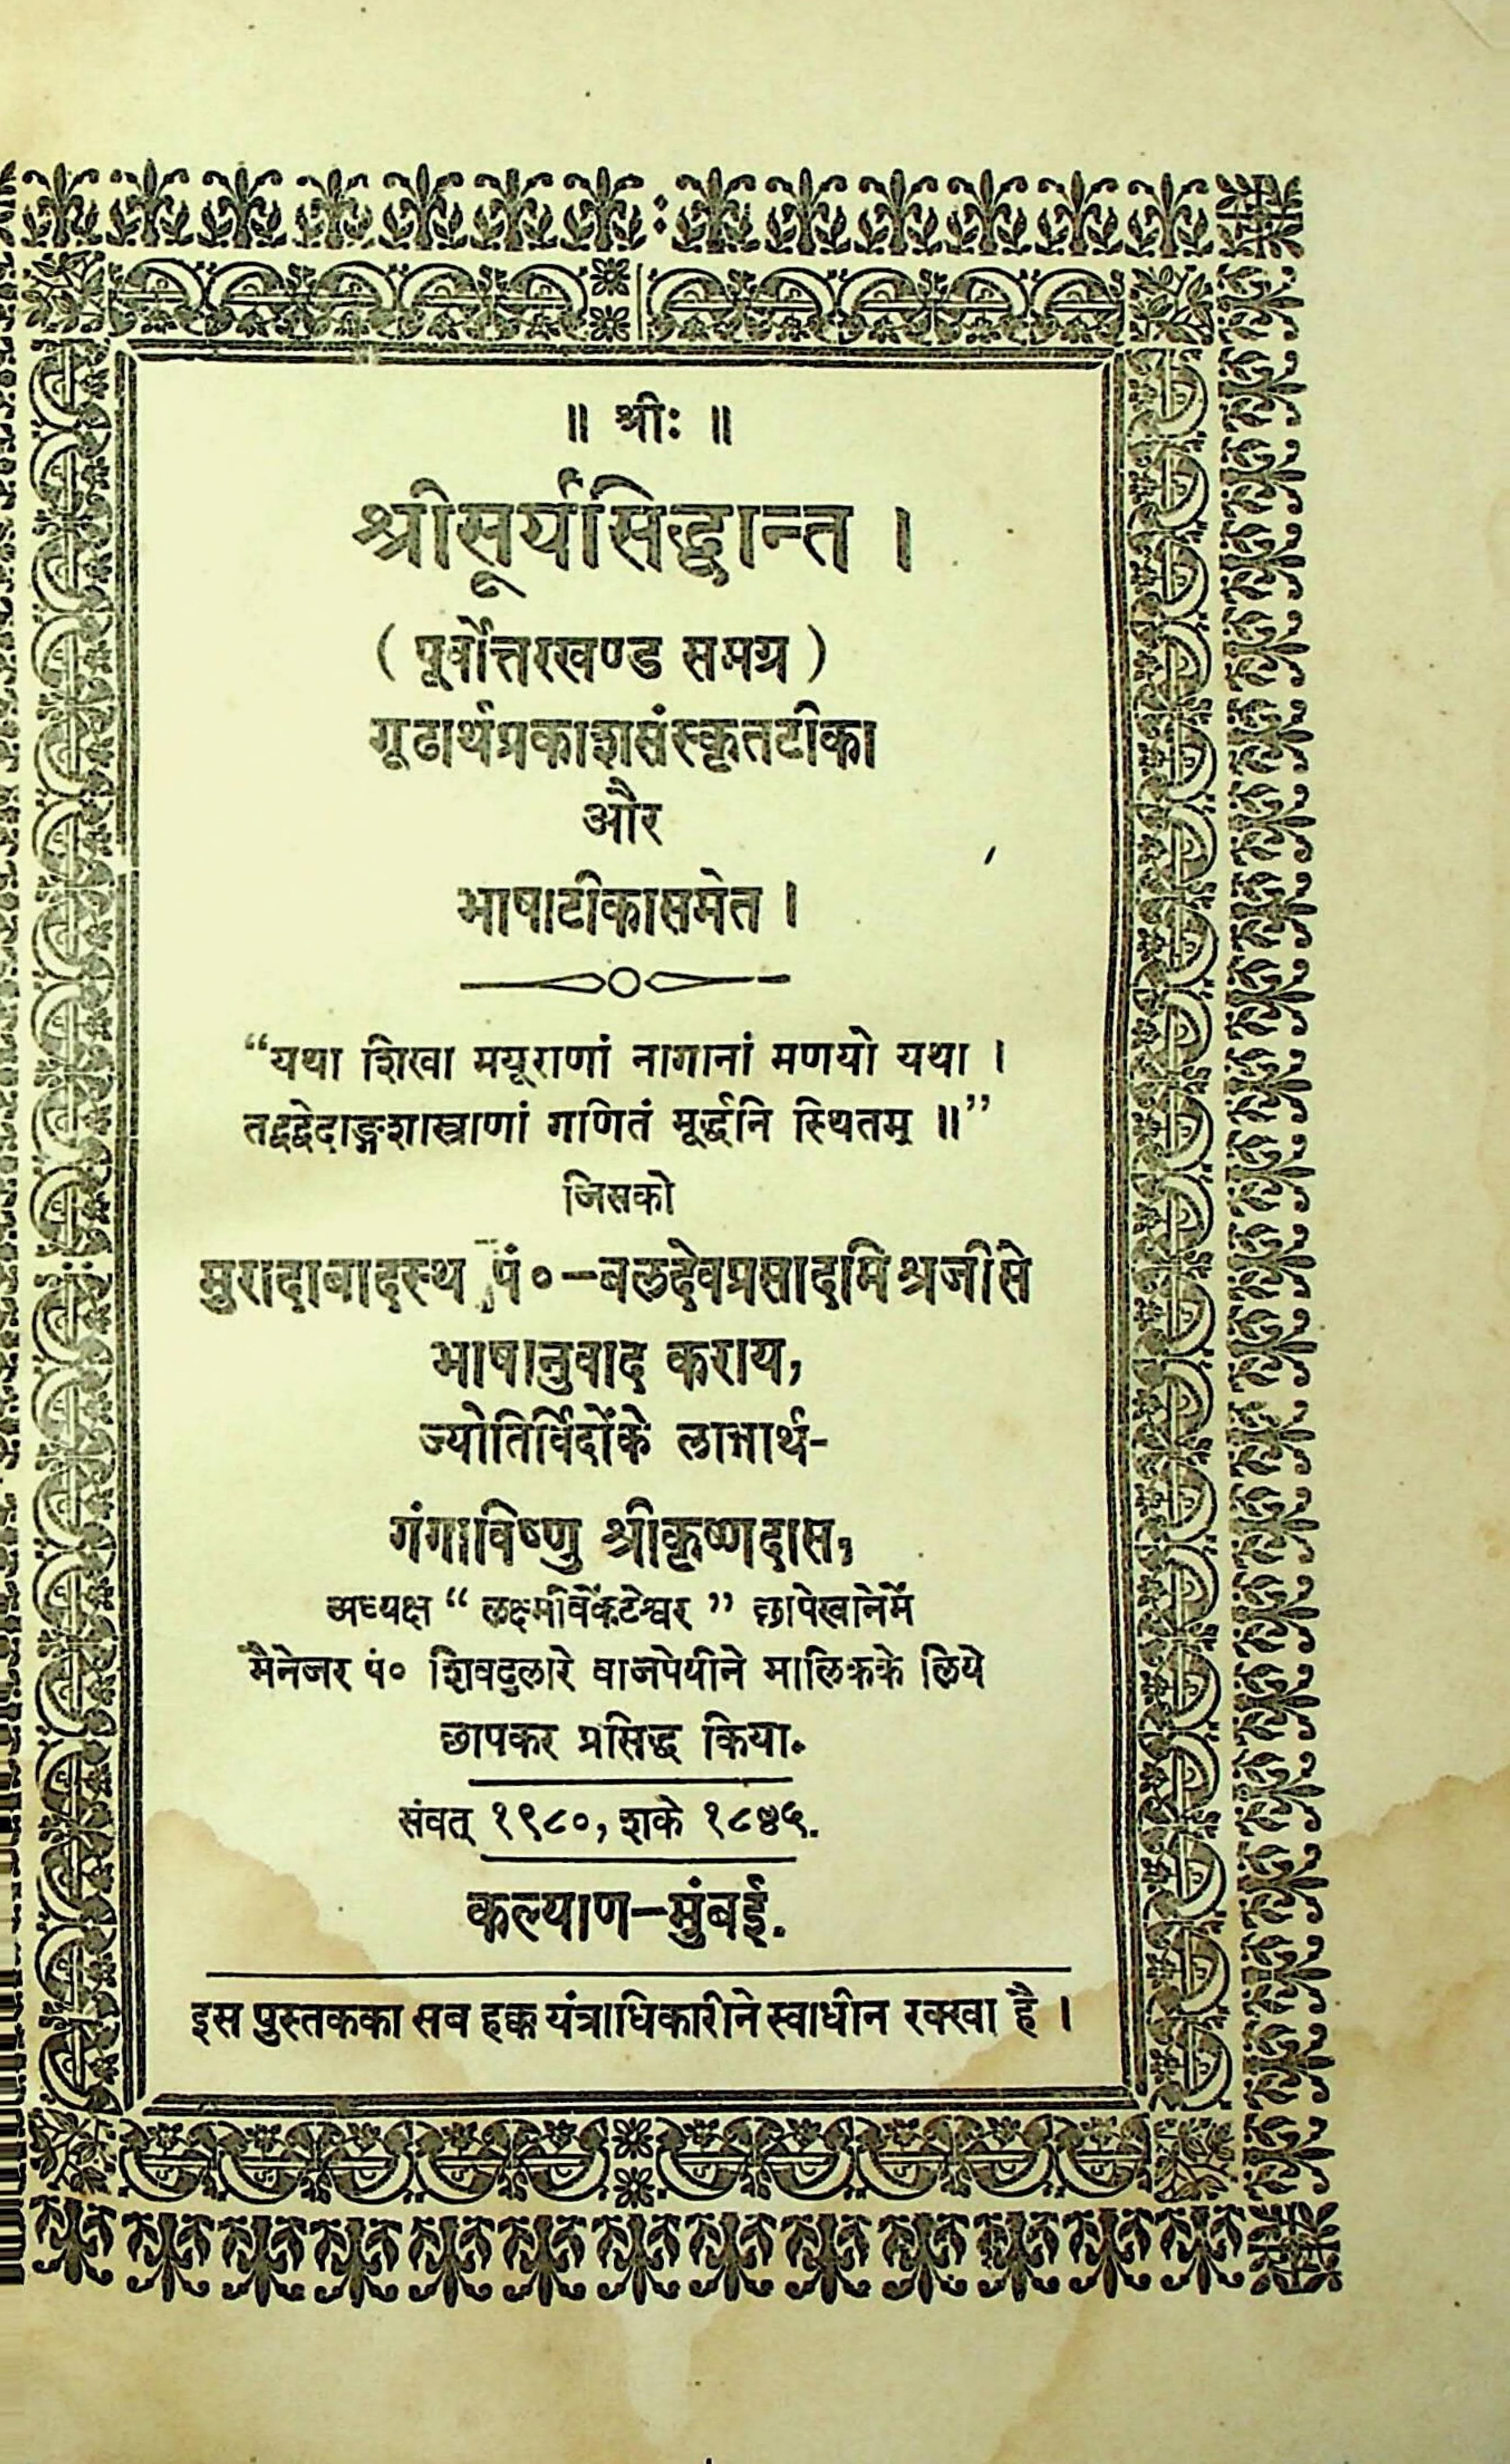 ॥ श्रीः ॥
श्रीसूर्यसिद्धान्त ।
( पूर्वोत्तरखण्ड समग्र )
गूढार्थप्रकाशसंस्कृतटीका
और
भाषाटीकासमेत ।
“यथा शिखा मयूराणां नागानां मणयो यथा ।
तद्वद्वेदाङ्गशास्त्राणां गणितं मूर्द्धनि स्थितम् ॥”
जिसको
मुरादाबादस्थ पं०–बलदेवप्रसादमिश्रजीसे
भाषानुवाद कराय,
ज्योतिर्विदोंके लाभार्थ-
गंगाविष्णु श्रीकृष्णदास,
अध्यक्ष “ लक्ष्मीवेंकटेश्वर ” छापेखानेमें
मैनेजर पं० शिवदुलारे वाजपेयीने मालिकके लिये
छापकर प्रसिद्ध किया.
संवत् १९८०, शके १८४५.
कल्याण–मुंबई.
इस पुस्तकका सब हक्क यंत्राधिकारीने स्वाधीन रक्खा है ।